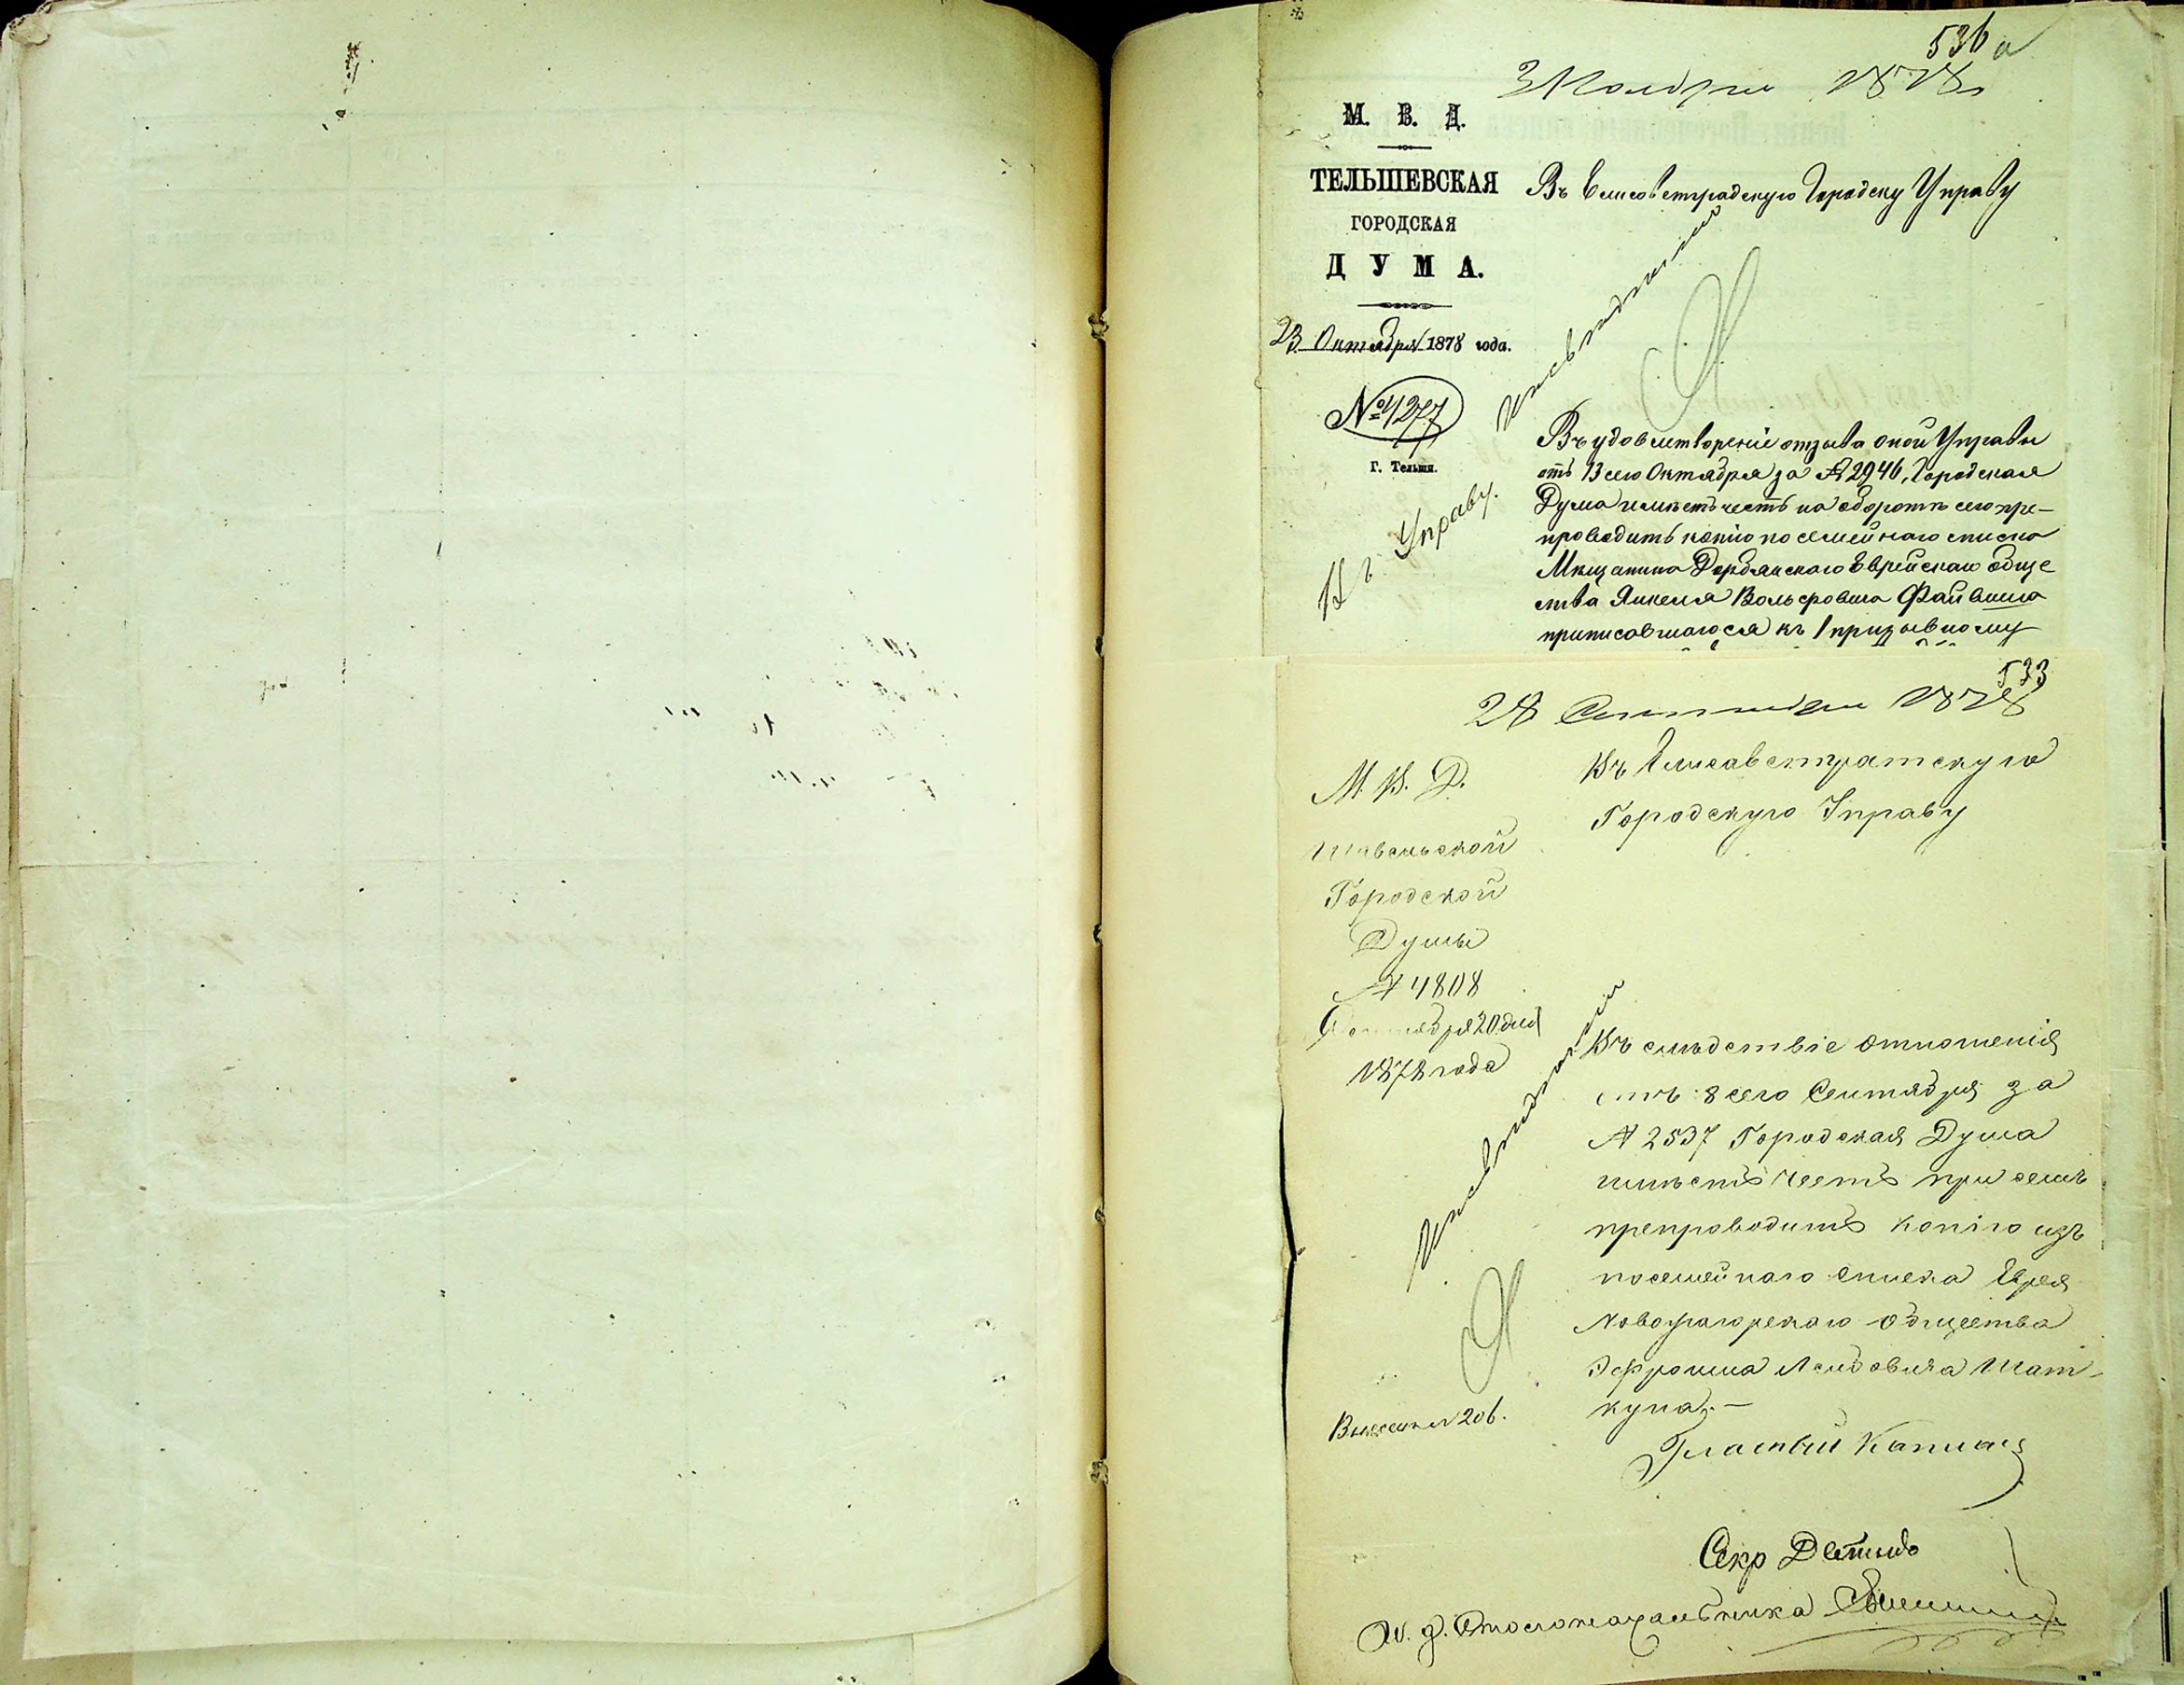 536 а
3 Ноября 1878
М. В. Д.
ТЕЛЬШЕВСКАЯ
ГОРОДСКАЯ
ДУМА.
23 Октября 1878 года.
№ 4277
Г. Тельши.
Въ Елисоветградскую Городску Управу
Въ Управу.
Въ удовлетвореніе отзыва оной Управы
отъ 13 сего Октября за № 2946, Городская
Дума имѣетъ честь на оборотѣ сего пре-
проводить копію посемейнаго списка
Мѣщанина Дорбянскаго Еврейскаго обще
ства Янкеля Вольфовича Файвиша
приписавшагося къ 1 призывному
533
28 Сентября 1878
М. В. Д.
Шавельской
Городской
Думы
№ 4808
Сентября 20 дня
1878 года
Въ Елисаветратскую
Городскую Управу
Въ слѣдствіе отношенія
отъ 8 сего Сентября за
№ 2537 Городская Дума
имѣетъ честь при семъ
препроводить копію изъ
посемейнаго списка Еврея
Новожагорскаго общества
Эфроима Лейбовича Шат-
купа.—
Гласный Каплан
Секр
И. д. Столоначальника